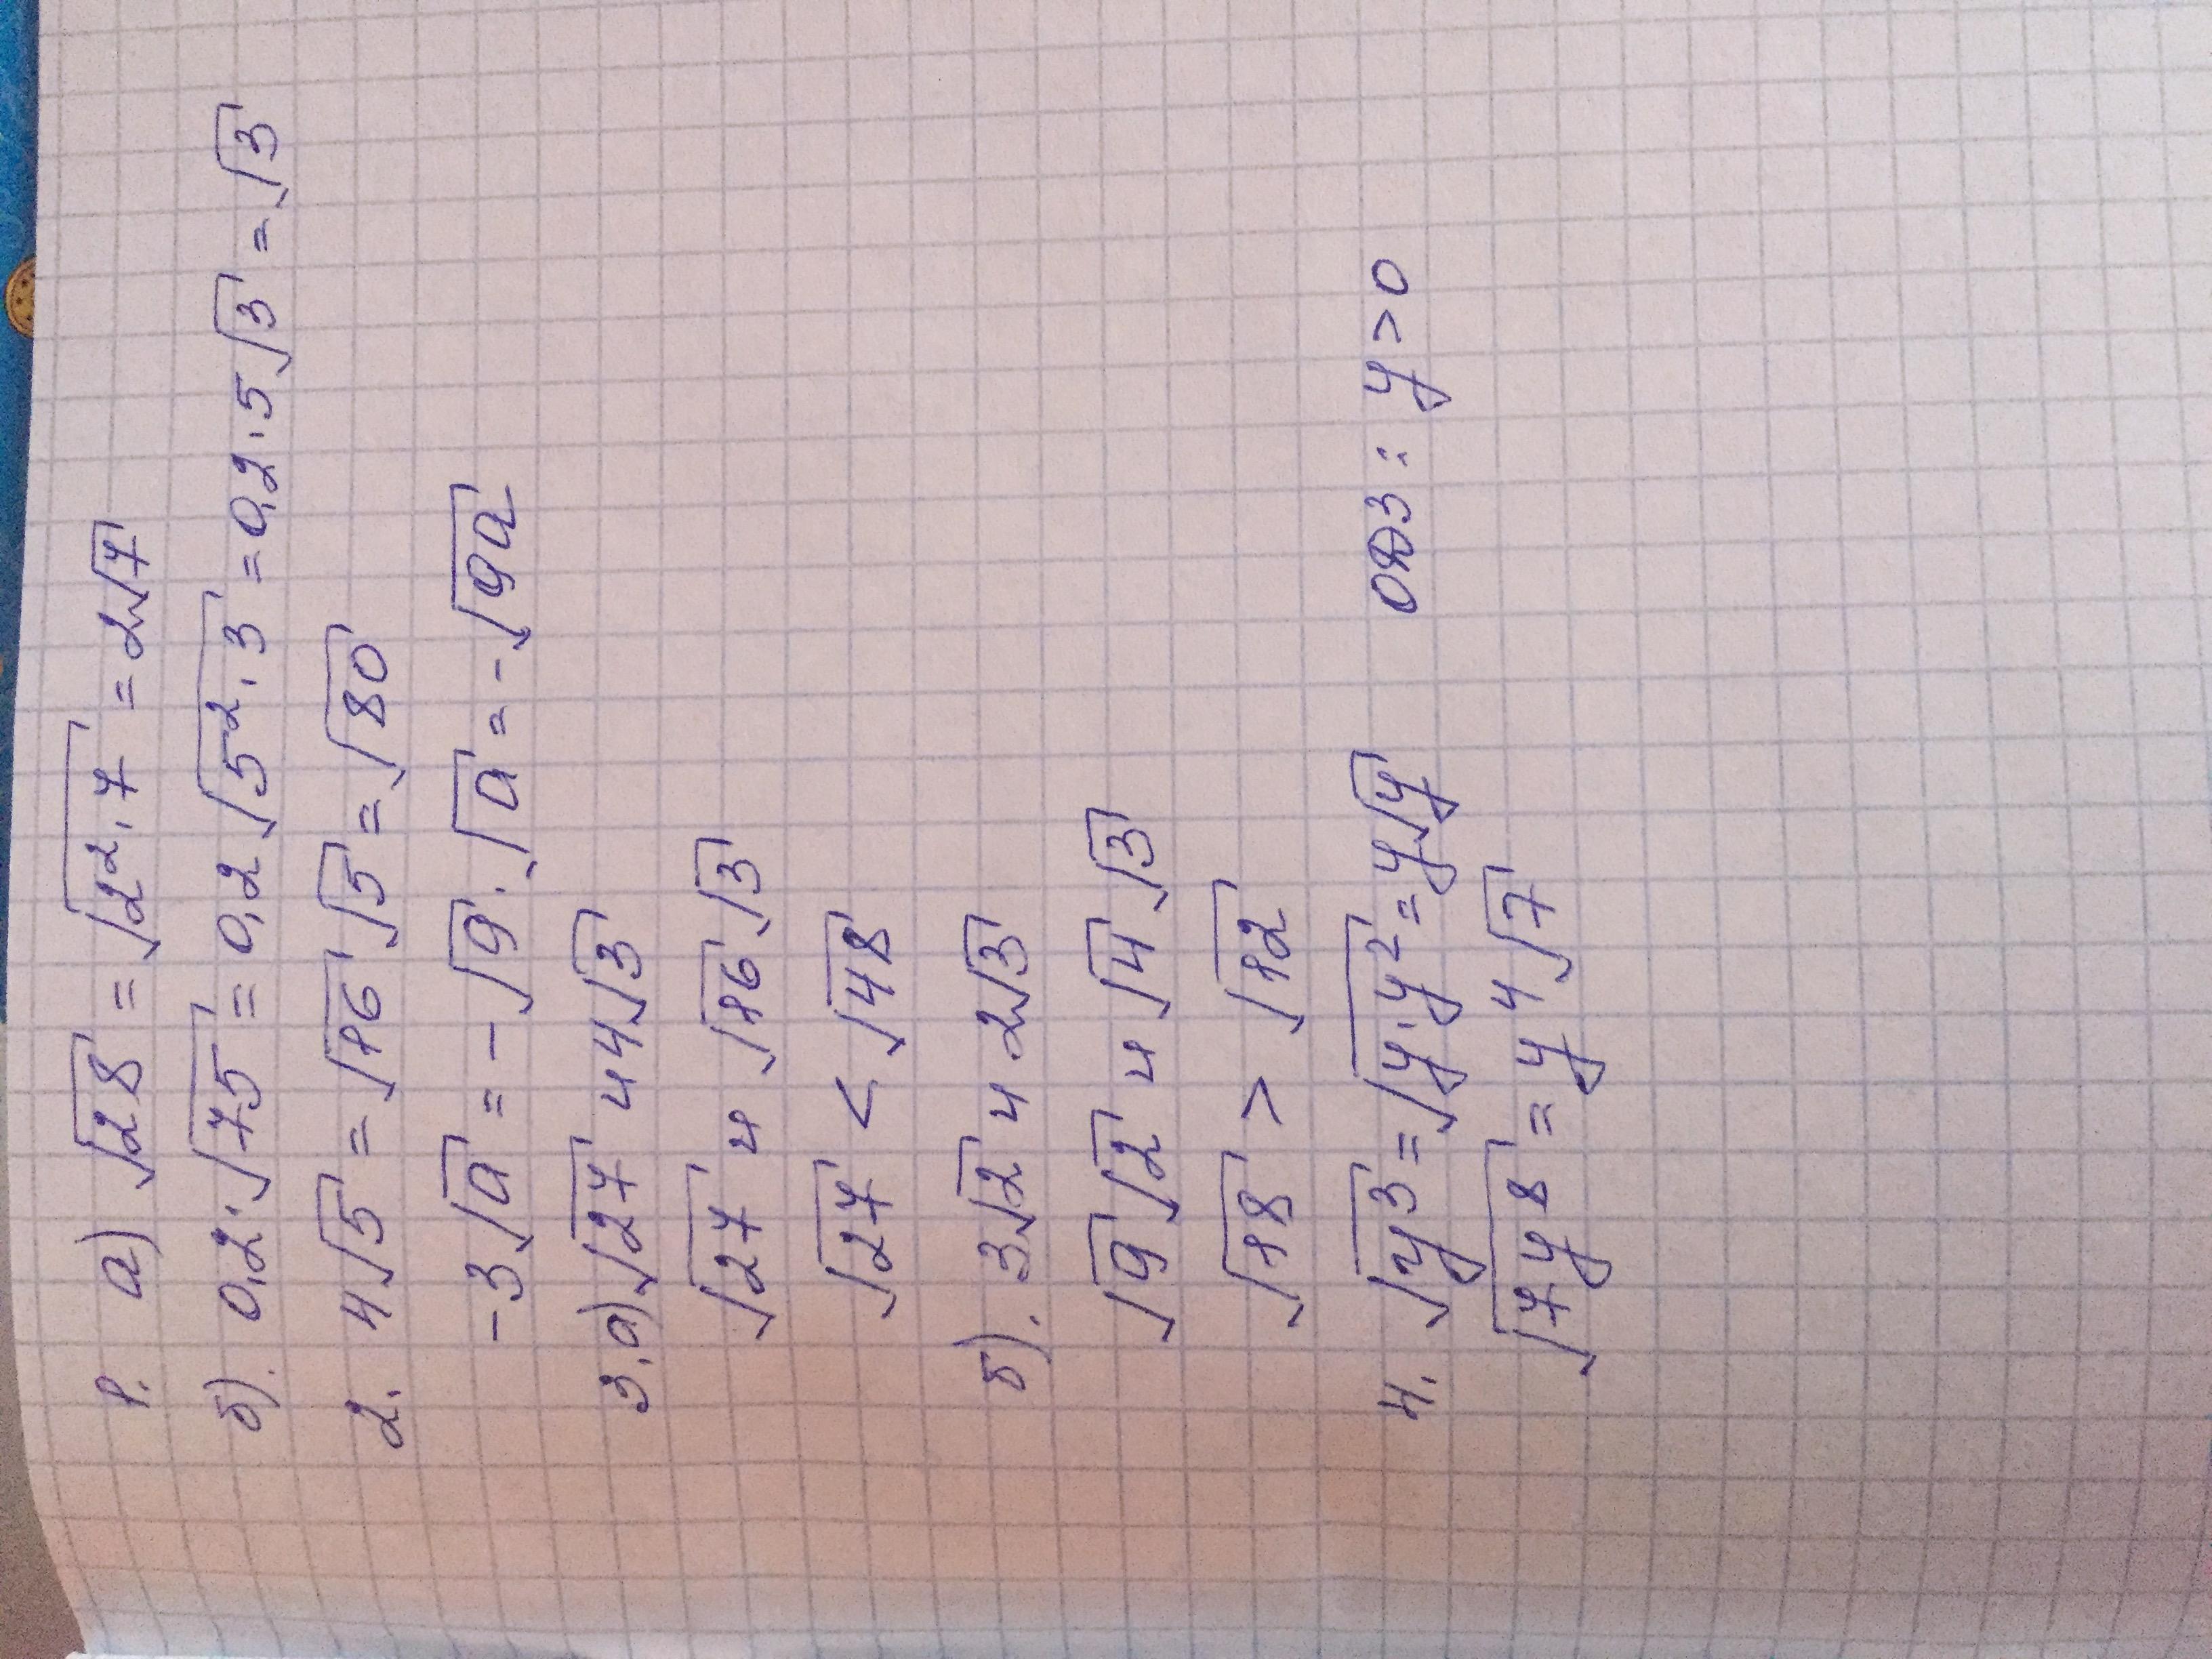 1. а) √28 = √2²·7 = 2√7
б). 0,2·√75 = 0,2√5²·3 = 0,2·5√3 = √3
2. 4√5 = √16 √5 = √80
-3√a = -√9·√a = -√9a
3.а) √27 и 4√3
√27 и √16 √3
√27 < √48
б). 3√2 и 2√3
√9 √2 и √4 √3
√18 > √12
4. √y³ = √y·y² = y√y ОДЗ: y>0
√7y⁸ = y⁴√7